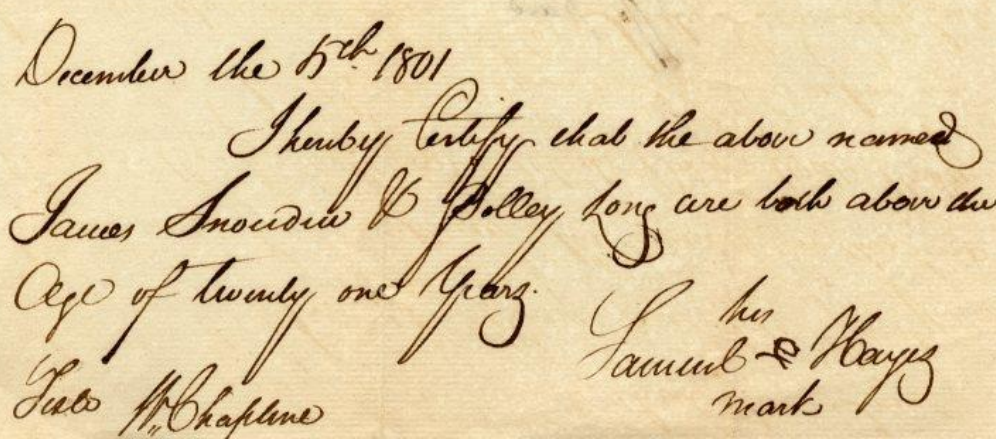 December the 5th 1801
I hereby Certify that the above named
James Snowden & Polley Long are both above the
Age of twenty one Years.
his
Samuel Hayes
mark
Teste Wm Chapline